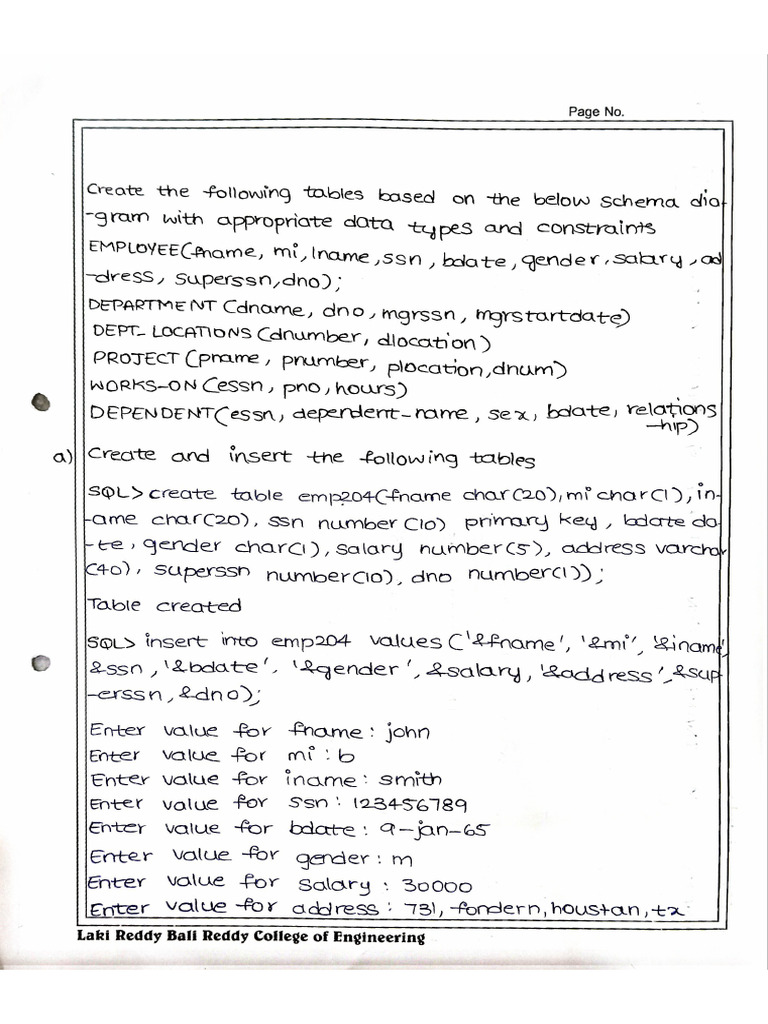 Page No.
Create the following tables based on the below schema dia-
-gram with appropriate data types and constraints
EMPLOYEE(fname, mi, lname, ssn, bdate, gender, salary, ad
-dress, superssn, dno);
DEPARTMENT (dname, dno, mgrssn, mgrstartdate)
DEPT_LOCATIONS (dnumber, dlocation)
PROJECT (pname, pnumber, plocation, dnum)
WORKS-ON (essn, pno, hours)
DEPENDENT (essn, dependent-name, sex, bdate, relations
-hip)
a) Create and insert the following tables
SQL> create table emp204(fname char(20), mi char(1), in-
-ame char(20), ssn number (10) primary key, bdate da-
-te, gender char(1), salary number(5), address varchar
(40), superssn number(10), dno number(1));
Table created
SQL> insert into emp204 values ('&fname', '&mi', '&iname',
&ssn, '&bdate', '&gender', &salary, '&address', &sup-
-erssn, &dno);
Enter value for fname: john
Enter value for mi: b
Enter value for iname: smith
Enter value for ssn: 123456789
Enter value for bdate: 9-jan-65
Enter value for gender: m
Enter value for salary: 30000
Enter value for address: 731, fondern, houstan, tx
Laki Reddy Bali Reddy College of Engineering